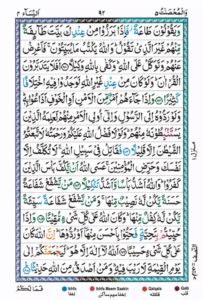 وَالْمُحْصَنٰتُ ۵ ۹۲ النِّسَآء ۴
وَيَقُوْلُوْنَ طَاعَةٌ فَاِذَا بَرَزُوْا مِنْ عِنْدِكَ بَيَّتَ طَآئِفَةٌ
مِّنْهُمْ غَيْرَ الَّذِيْ تَقُوْلُ وَاللّٰهُ يَكْتُبُ مَا يُبَيِّتُوْنَ فَاَعْرِضْ
عَنْهُمْ وَتَوَكَّلْ عَلَى اللّٰهِ وَكَفٰى بِاللّٰهِ وَكِيْلًا اَفَلَا يَتَدَبَّرُوْنَ
الْقُرْاٰنَ وَلَوْ كَانَ مِنْ عِنْدِ غَيْرِ اللّٰهِ لَوَجَدُوْا فِيْهِ اخْتِلَافًا
كَثِيْرًا وَاِذَا جَآءَهُمْ اَمْرٌ مِّنَ الْاَمْنِ اَوِ الْخَوْفِ اَذَاعُوْا بِهٖ
وَلَوْ رَدُّوْهُ اِلَى الرَّسُوْلِ وَاِلٰٓى اُولِى الْاَمْرِ مِنْهُمْ لَعَلِمَهُ الَّذِيْنَ
يَسْتَنْۢبِطُوْنَهٗ مِنْهُمْ وَلَوْلَا فَضْلُ اللّٰهِ عَلَيْكُمْ وَرَحْمَتُهٗ لَاتَّبَعْتُمُ
الشَّيْطٰنَ اِلَّا قَلِيْلًا فَقَاتِلْ فِيْ سَبِيْلِ اللّٰهِ لَا تُكَلَّفُ اِلَّا
نَفْسَكَ وَحَرِّضِ الْمُؤْمِنِيْنَ عَسَى اللّٰهُ اَنْ يَّكُفَّ بَاْسَ الَّذِيْنَ
كَفَرُوْا وَاللّٰهُ اَشَدُّ بَاْسًا وَّاَشَدُّ تَنْكِيْلًا مَنْ يَّشْفَعْ شَفَاعَةً
حَسَنَةً يَّكُنْ لَّهٗ نَصِيْبٌ مِّنْهَا وَمَنْ يَّشْفَعْ شَفَاعَةً سَيِّئَةً
يَّكُنْ لَّهٗ كِفْلٌ مِّنْهَا وَكَانَ اللّٰهُ عَلٰى كُلِّ شَيْءٍ مُّقِيْتًا وَاِذَا
حُيِّيْتُمْ بِتَحِيَّةٍ فَحَيُّوْا بِاَحْسَنَ مِنْهَآ اَوْ رُدُّوْهَا اِنَّ اللّٰهَ كَانَ
عَلٰى كُلِّ شَيْءٍ حَسِيْبًا اَللّٰهُ لَآ اِلٰهَ اِلَّا هُوَ لَيَجْمَعَنَّكُمْ اِلٰى
يَوْمِ الْقِيٰمَةِ لَا رَيْبَ فِيْهِ وَمَنْ اَصْدَقُ مِنَ اللّٰهِ حَدِيْثًا